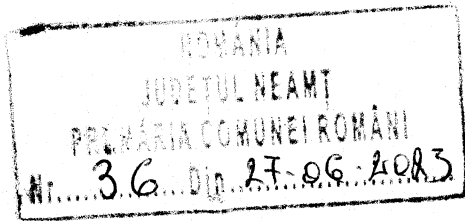 ROMÂNIA
JUDEȚUL NEAMȚ
PRIMĂRIA COMUNEI ROMÂNI
Nr.....36...Din.27-06-2023